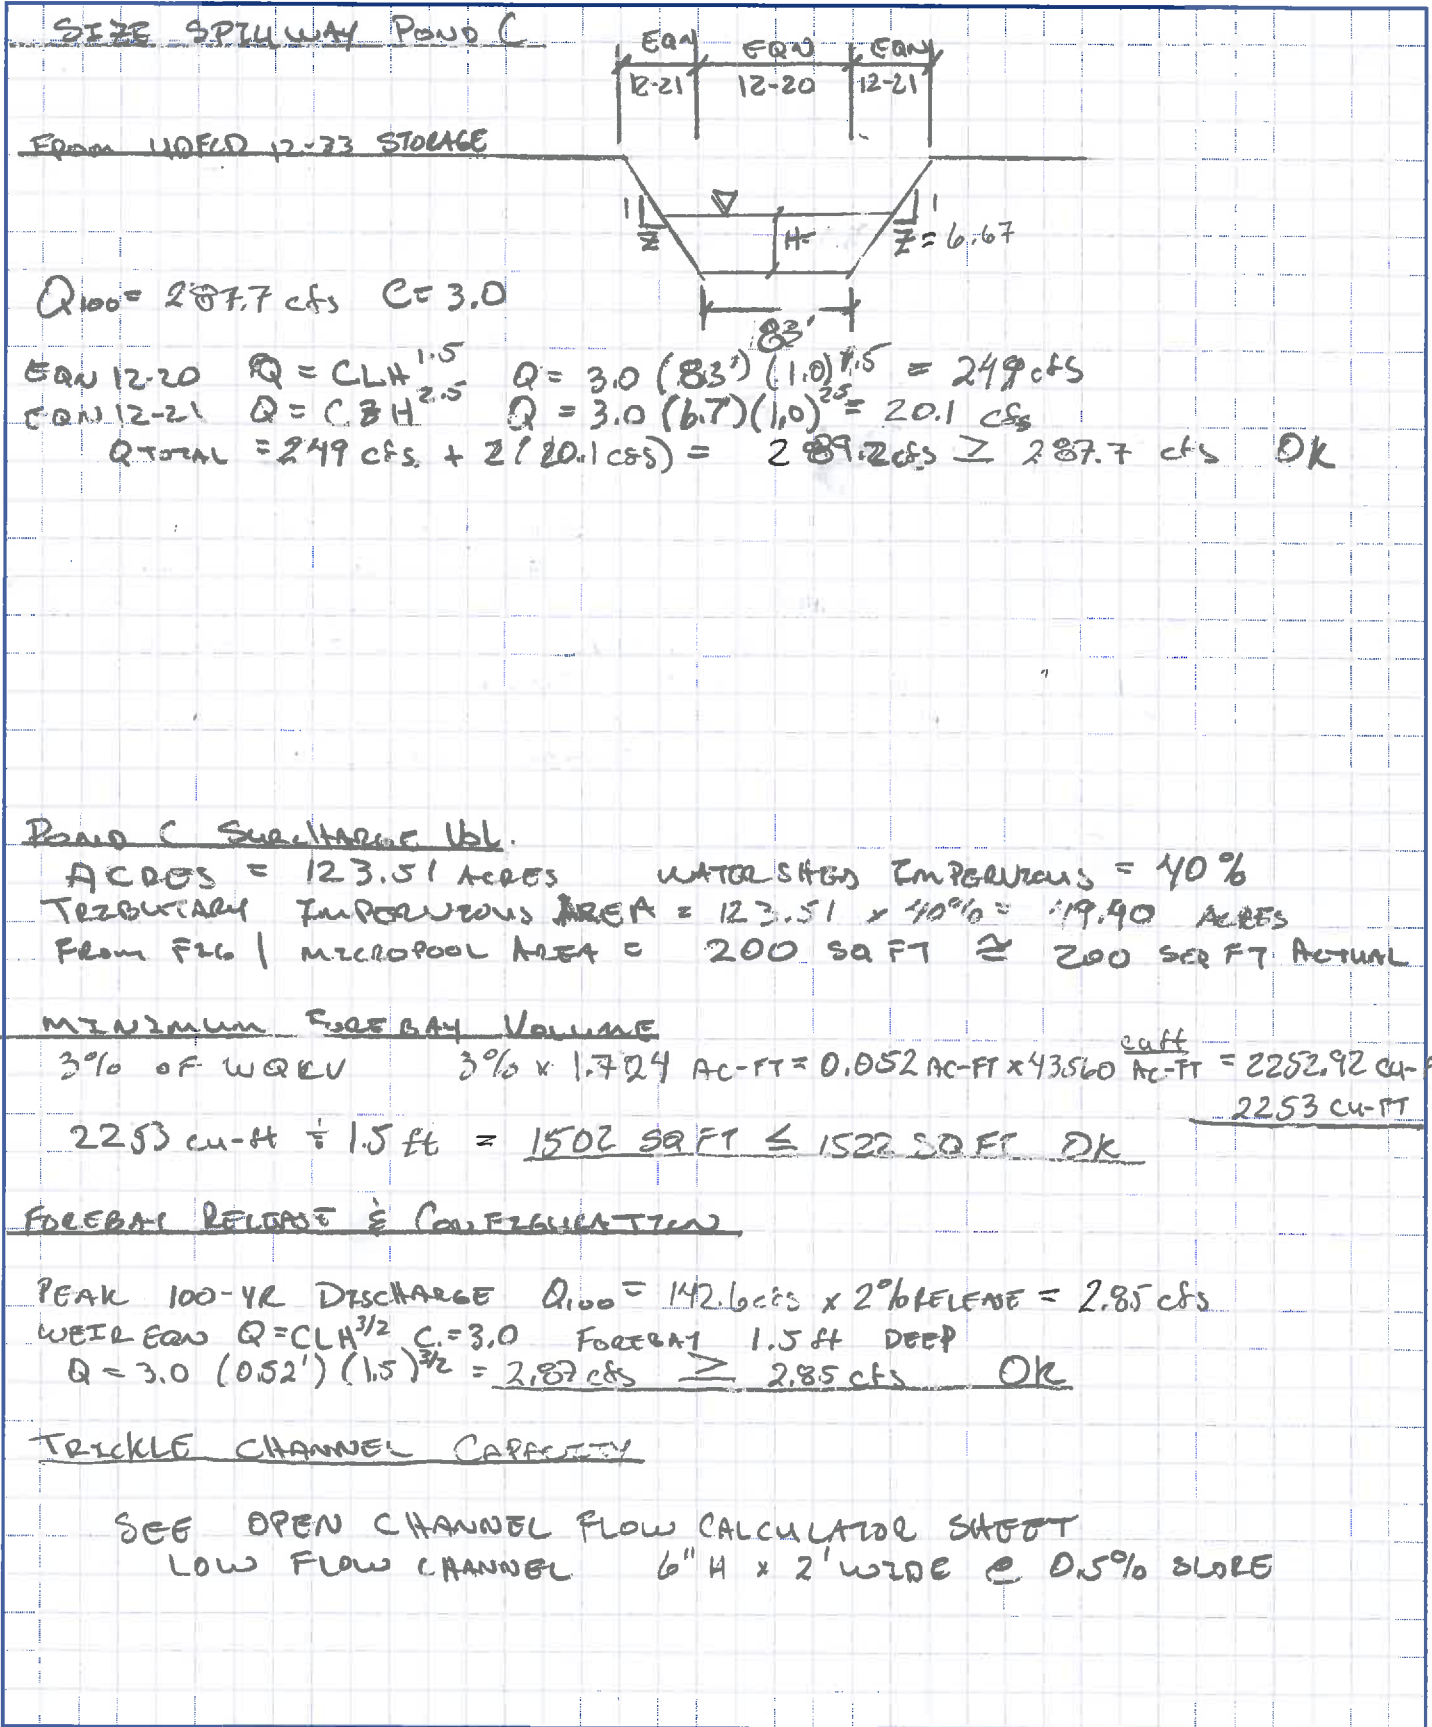 SIZE SPILLWAY POND C
EQN EQN EQN
12-21 12-20 12-21
FROM UDFCD 12-33 STORAGE
1 Z H= 1 Z = 6.67
83'
Q100 = 287.7 cfs C = 3.0
EQN 12-20 Q = CLH^1.5 Q = 3.0 (83') (1.0)^1.5 = 249 cfs
EQN 12-21 Q = CZH^2.5 Q = 3.0 (6.7) (1.0)^2.5 = 20.1 cfs
Q TOTAL = 249 cfs + 2(20.1 cfs) = 289.2 cfs ≥ 287.7 cfs OK
POND C SURCHARGE VOL.
ACRES = 123.51 ACRES WATERSHED IMPERVIOUS = 40%
TRIBUTARY IMPERVIOUS AREA = 123.51 x 40% = 49.40 ACRES
FROM FIG 1 MICROPOOL AREA = 200 SQ FT ≅ 200 SQ FT ACTUAL
MINIMUM FOREBAY VOLUME
3% OF WQCV 3% x 1.724 AC-FT = 0.052 AC-FT x 43560 cuft/AC-FT = 2252.92 CU-F
2253 CU-FT
2253 cu-ft ÷ 1.5 ft = 1502 SQ FT ≤ 1522 SQ FT OK
FOREBAY RELEASE & CONFIGURATION
PEAK 100-YR DISCHARGE Q100 = 142.6 cfs x 2% RELEASE = 2.85 cfs
WEIR EQN Q = CLH^3/2 C = 3.0 FOREBAY 1.5 ft DEEP
Q = 3.0 (0.52') (1.5)^3/2 = 2.87 cfs ≥ 2.85 cfs OK
TRICKLE CHANNEL CAPACITY
SEE OPEN CHANNEL FLOW CALCULATOR SHEET
LOW FLOW CHANNEL 6" H x 2' WIDE @ 0.5% SLOPE